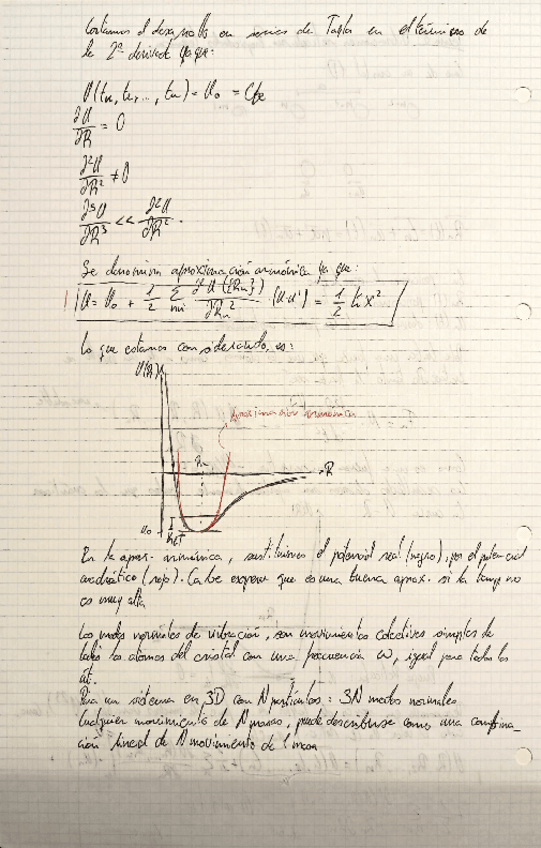 Cortamos el desarrollo en series de Taylor en el término de
la 2ª derivada ya que:
U(t₁, t₂, ..., tₙ) = U₀ = Cte
∂U/∂R = 0
∂²U/∂R² ≠ 0
∂³U/∂R³ << ∂²U/∂R².
Se denomina aproximación armónica ya que:
U = U₀ + 1/2 Σ ∂²U({Rₙ})/∂Rₙ² (u·u') = 1/2 k x²
Lo que estamos considerando, es:
U(R)
Aproximación armónica
Rₙ
R
U₀
K_BT
En la aprox. armónica, sustituimos el potencial real (negro), por el potencial
cuadrático (rojo). Cabe esperar que es una buena aprox. si la temp no
es muy alta
Los modos normales de vibración, son movimientos colectivos simples de
todos los átomos del cristal con una frecuencia ω, igual para todos los
át.
Para un sistema en 3D con N partículas: 3N modos normales
Cualquier movimiento de N masas, puede describirse como una combina-
ción lineal de N movimiento de 1 masa